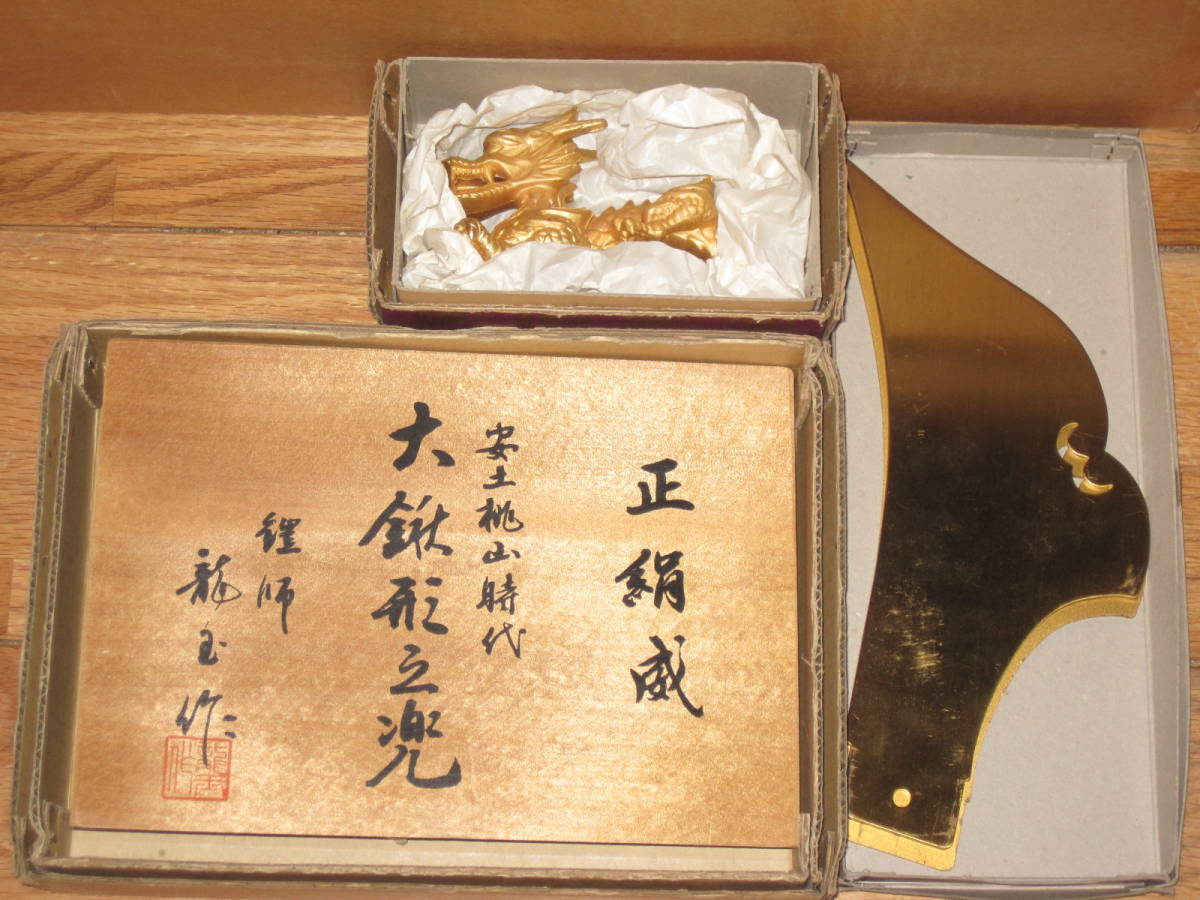 正絹威
安土桃山時代
大鍬形之兜
鎧師
龍玉作
龍玉作